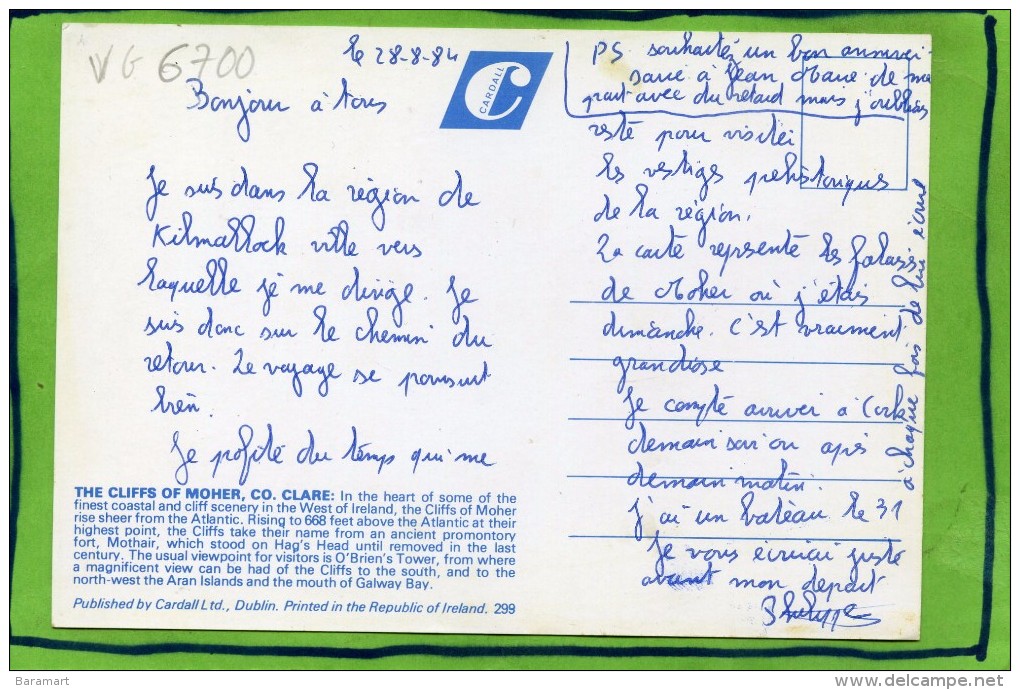 VG 6700
le 28-8-84
Bonjour à tous
Je suis dans la région de
Kilmallock ville vers
laquelle je me dirige. Je
suis donc sur le chemin du
retour. Le voyage se poursuit
bien.
Je profite du temps qui me
THE CLIFFS OF MOHER, CO. CLARE: In the heart of some of the
finest coastal and cliff scenery in the West of Ireland, the Cliffs of Moher
rise sheer from the Atlantic. Rising to 668 feet above the Atlantic at their
highest point, the Cliffs take their name from an ancient promontory
fort, Mothair, which stood on Hag's Head until removed in the last
century. The usual viewpoint for visitors is O'Brien's Tower, from where
a magnificent view can be had of the Cliffs to the south, and to the
north-west the Aran Islands and the mouth of Galway Bay.
Published by Cardall Ltd., Dublin. Printed in the Republic of Ireland. 299
CARDALL
PS souhaitez un bon anniver-
saire à Jean Marie de ma
part avec du retard mais j'oubliais
à chaque fois de lui écrire
reste pour visiter
les vestiges préhistoriques
de la région.
La carte représente les falaises
de Moher où j'étais
dimanche. C'est vraiment
grandiose
Je compte arriver à Cork
demain soir ou après
demain matin.
J'ai un bateau le 31
Je vous écrirai juste
avant mon départ
Philippe
Baramart
www.delcampe.net